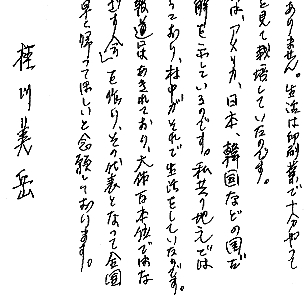 ありません。生活は印刷業で十分やって
を見て栽培していたのです。
は、アメリカ、日本、韓国などの国が
解を示しているのです。私共の地元では
ており、村中がそれで生活をしていたのです。
報道はあきれており、大体百本位ではな
す会」を作り、その代表となって全国
早く帰ってほしいと念願しております。
桂川美岳